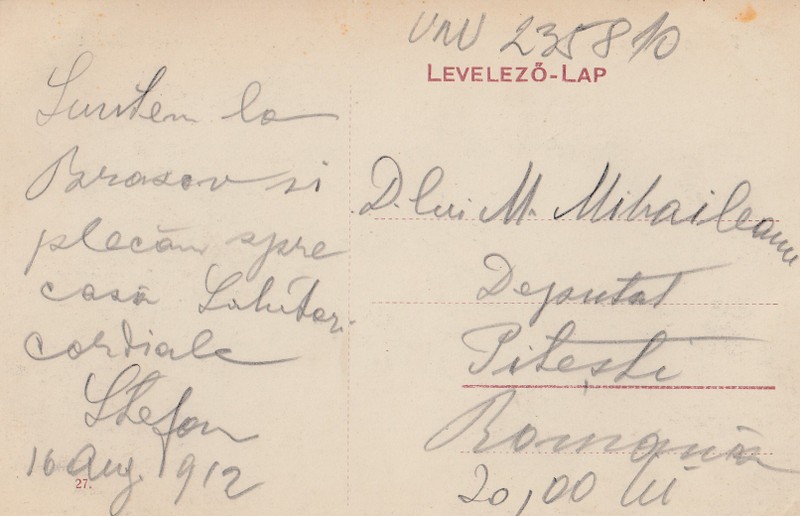 Suntem la
Brasov si
plecăm spre
casă Salutari
cordiale
Stefan
16 Aug. 912
27.
235810
LEVELEZŐ-LAP
D.lui M. Mihaileanu
Deputat
Pitești
România
20,00 lei